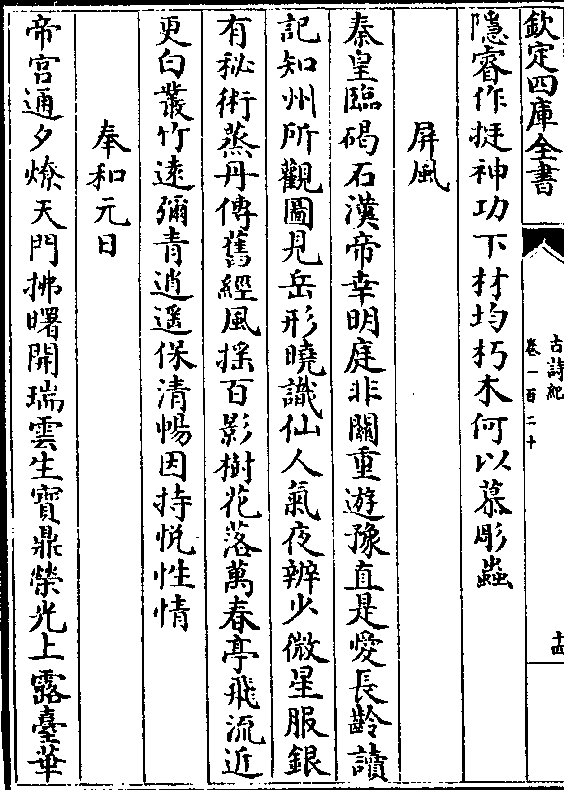 欽定四庫全書
古詩紀
卷一百二十
十四
隱睿作挺神功下材均朽木何以慕彫蟲
屏風
秦皇臨碣石漢帝幸明庭非關重遊豫直是愛長齡讀
記知州所觀圖見岳形曉識仙人氣夜辨少微星服銀
有秘術蒸丹傳舊經風揺百影樹花落萬春亭飛流近
更白叢竹遠彌青逍遥保清暢因持悦性情
奉和元日
帝宫通夕燎天門拂曙開瑞雲生寶鼎榮光上露臺華